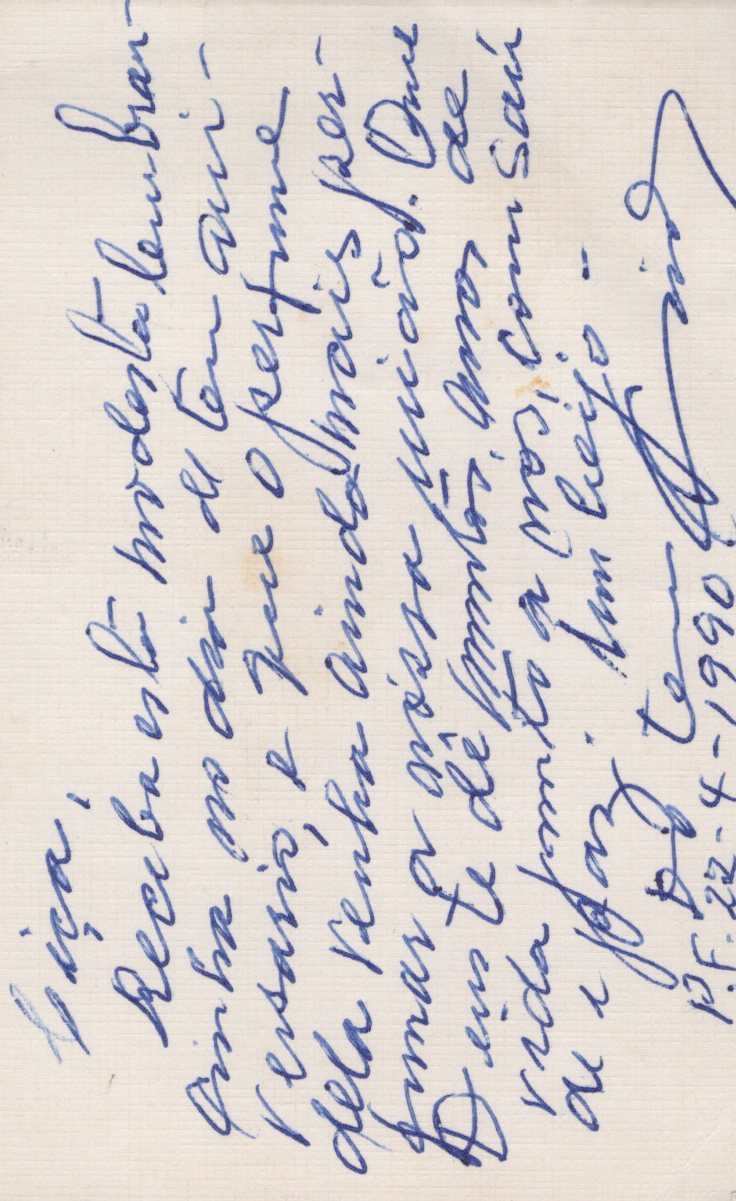 Ciça,
Receba esta modesta lembran-
cinha no dia de teu ani-
versario, e que o perfume
dela venha ainda mais per-
fumar a nossa união. Que
Deus te dê muitos anos de
vida junto a nós, com saú
de e paz. Um beijo -
Do teu
P.F. 22-4-1990